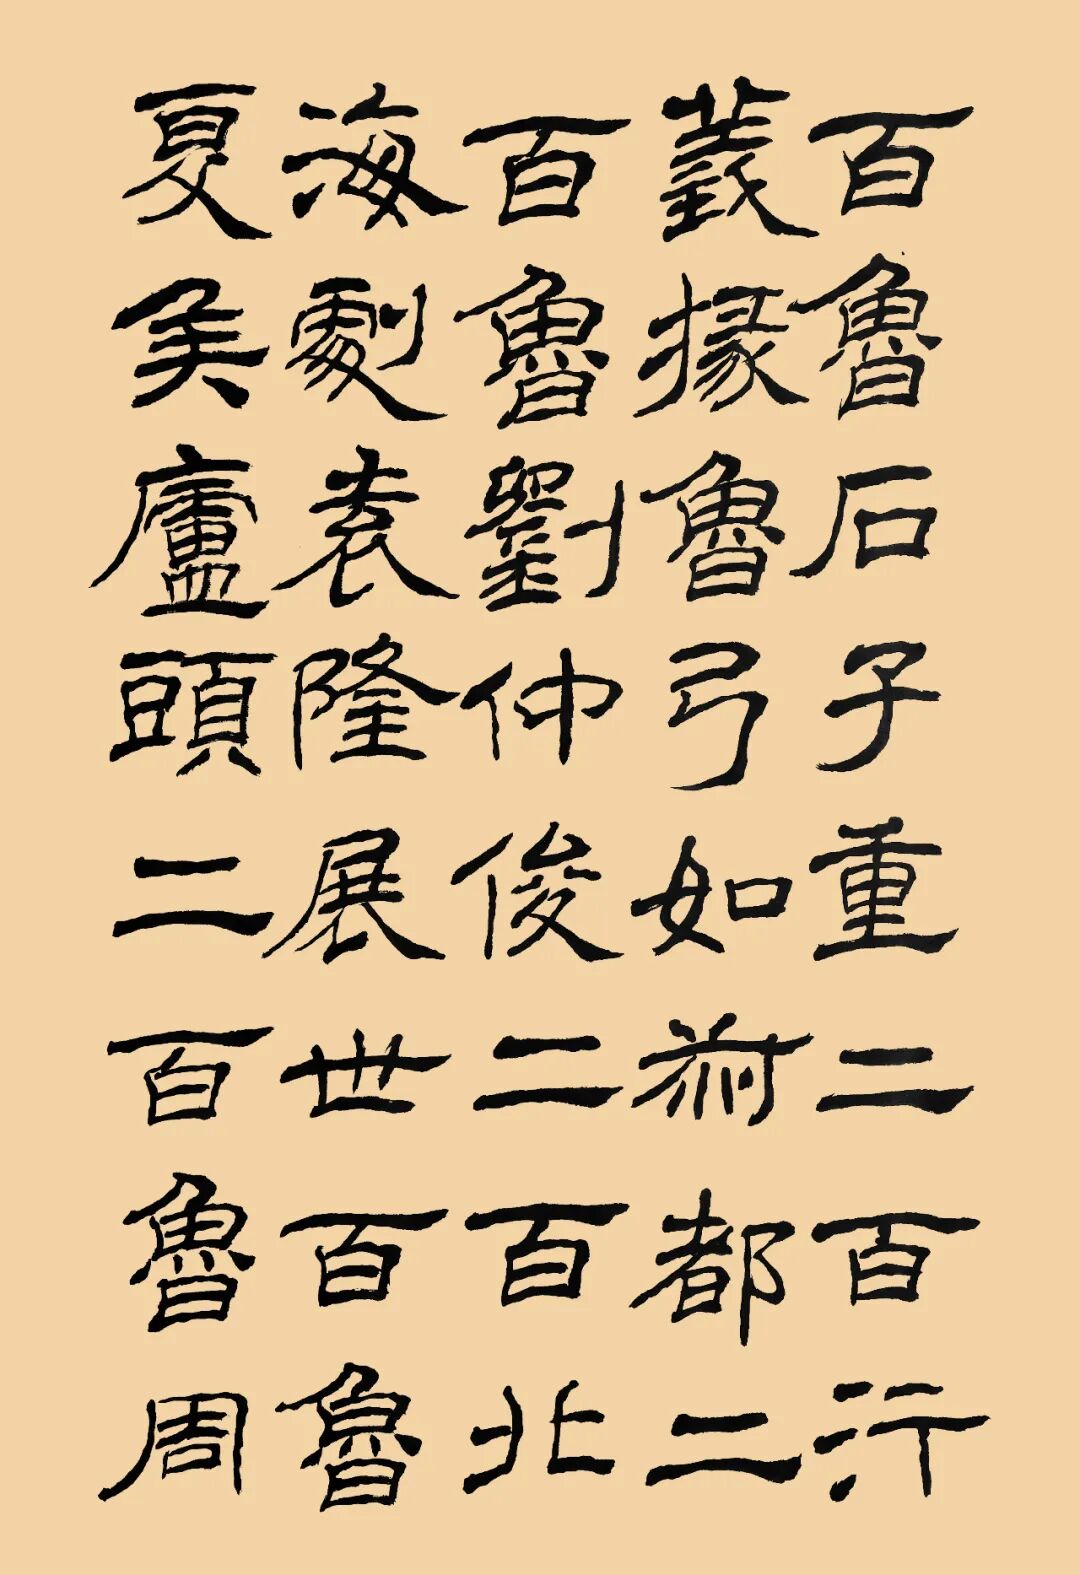 百魯石子重二百行
義掾魯弓如叔都二
百魯劉仲俊二百北
海劇袁隆展世百魯
夏矦廬頭二百魯周